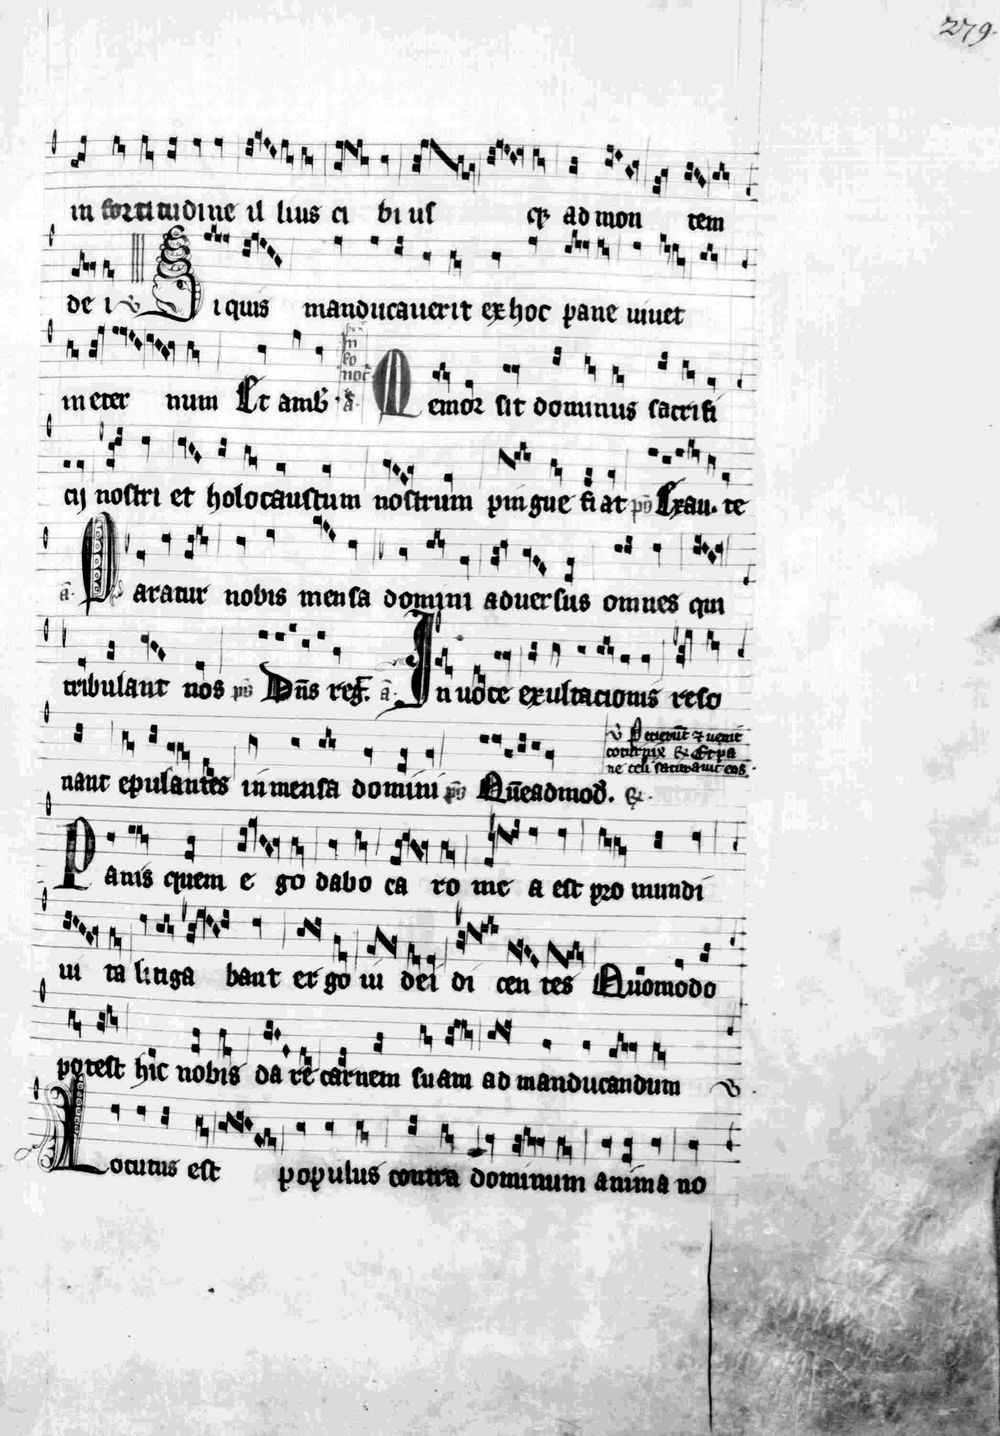 279.
in fortitudine il lius ci bi us ad mon tem
de i ℣ Si quis manducauerit ex hoc pane uiuet
in eter num Et amb̄. In
no noct̄
a̅. Memor sit dominus sacrifi
cij nostri et holocaustum nostrum pingue fi at ps̄ Exau. te
a̅. Paratur nobis mensa domini aduersus omnes qui
tribulant nos ps̄ Dn̄s reḡ. a̅. In uoce exultacionis reso
nant epulantes in mensa domini ps̄ Quēadmod̄.
℣ Petierunt ⁊ uenit
cotur pix Et pa
ne celi saturauit eos.
Panis quem e go dabo ca ro me a est pro mundi
ui ta litiga bant er go iu dei di cen tes Quomodo
potest hic nobis da re carnem suam ad manducandum ℣
Locutus est populus contra dominum anima no